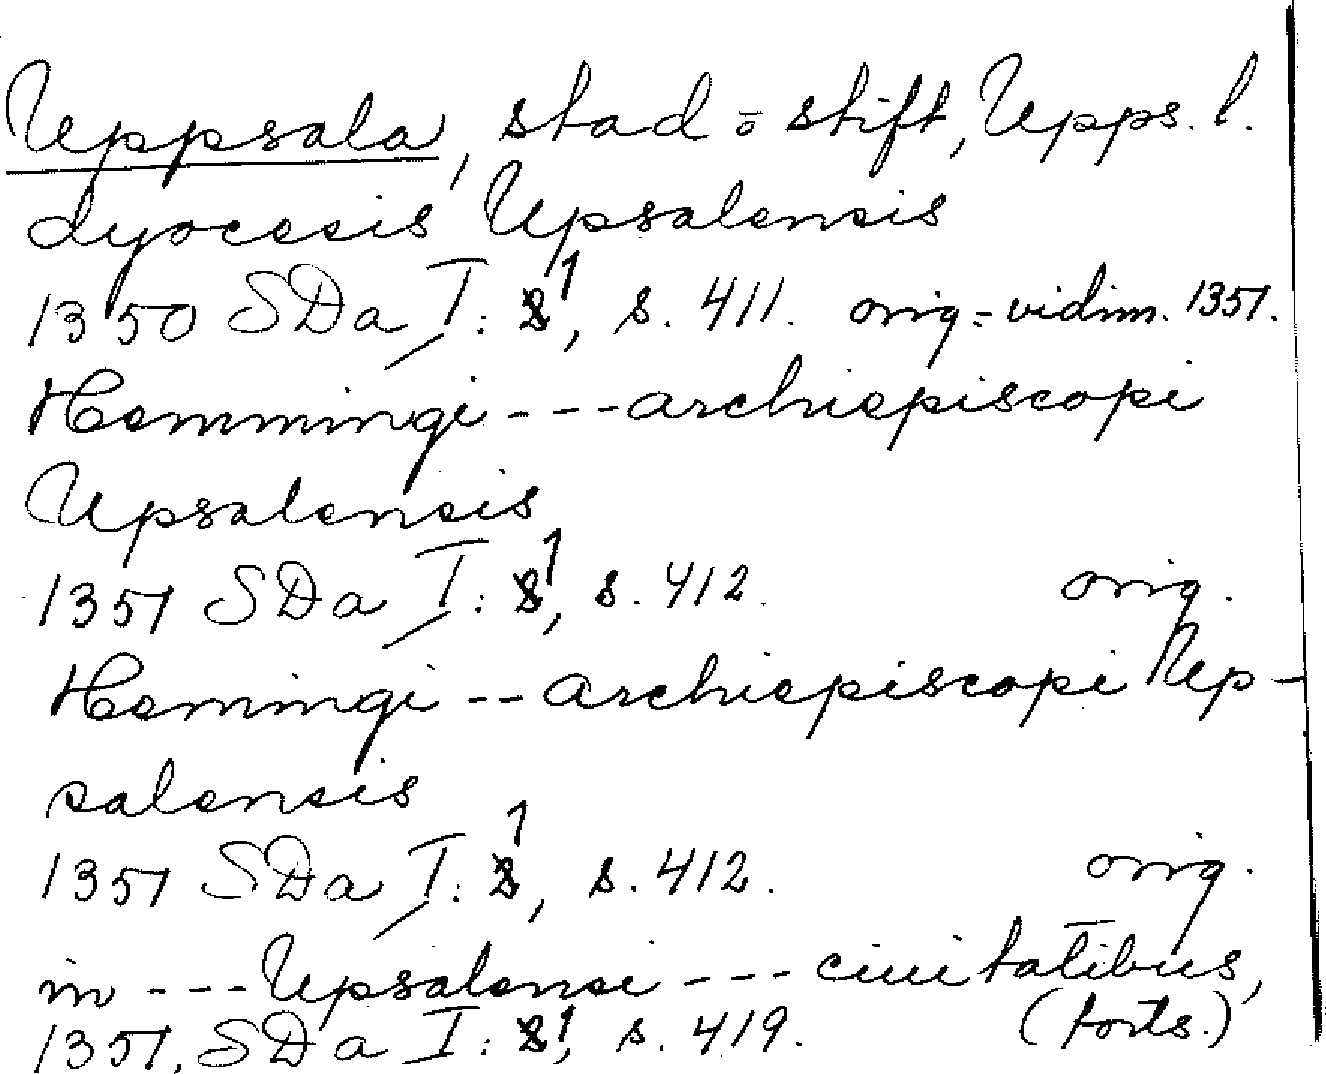 Uppsala, stad o stift, Upps. l.
dyocesis Upsalensis
1350 SDa I: 1, s. 411. orig.=vidim. 1351.
Hemmingi --- archiepiscopi
Upsalensis
1351 SDa I: 1, s. 412. orig.
Hemingi -- archiepiscopi Up-
salensis
1351 SDa I: 1, s. 412. orig.
in --- Upsalensi --- ciuitatibus,
1351, SDa I: 1, s. 419. (forts.)